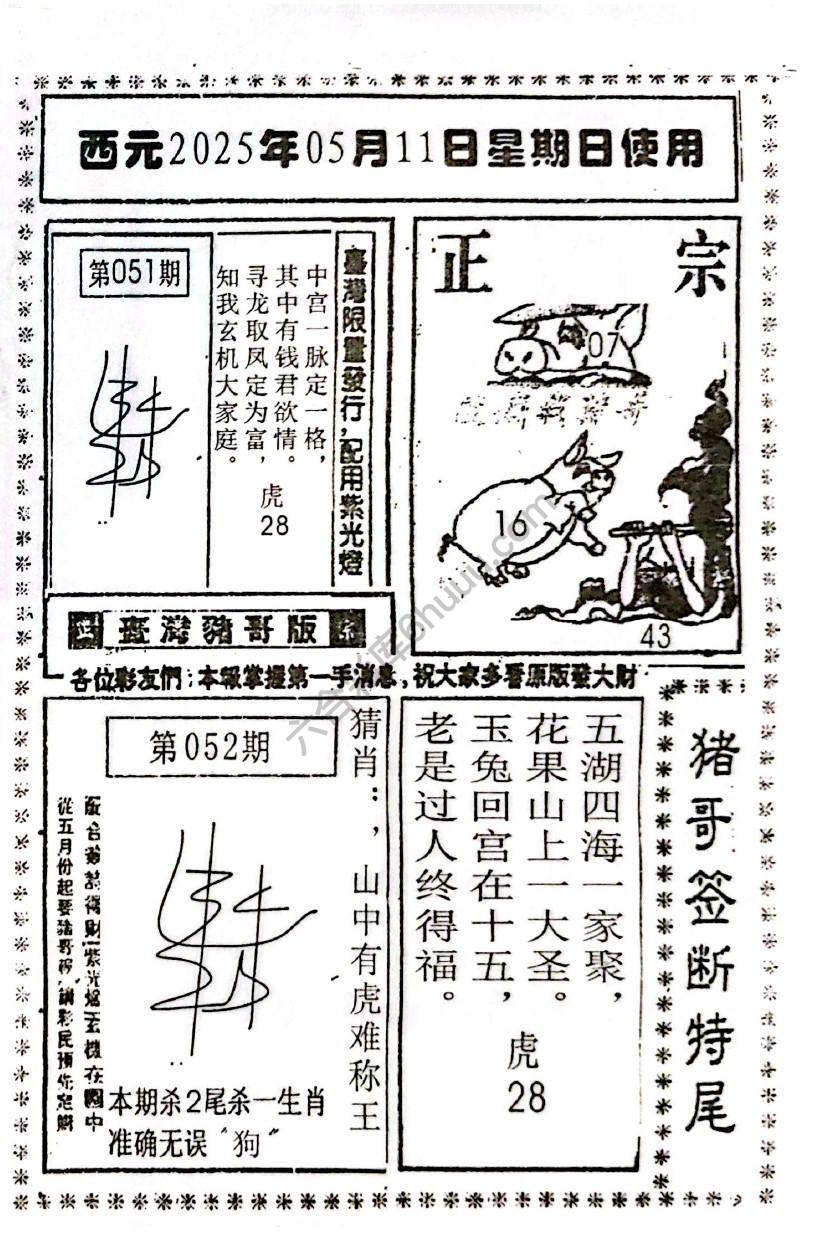 西元2025年05月11日星期日使用
第051期
臺灣限量發行,配用紫光燈
中宫一脉定一格,
其中有钱君欲情。
寻龙取凤定为富,
知我玄机大家庭。
虎
28
正宗
07
16
43
臺灣豬哥版
各位彩友們:本報掌握第一手消息,祝大家多看原版發大財
六合彩库6huuu.com
第052期
猜肖:,山中有虎难称王
從五月份起要豬哥
本期杀2尾杀一生肖
准确无误"狗"
五湖四海一家聚,
花果山上一大圣。
玉兔回宫在十五,
老是过人终得福。
虎
28
猪哥签断特尾